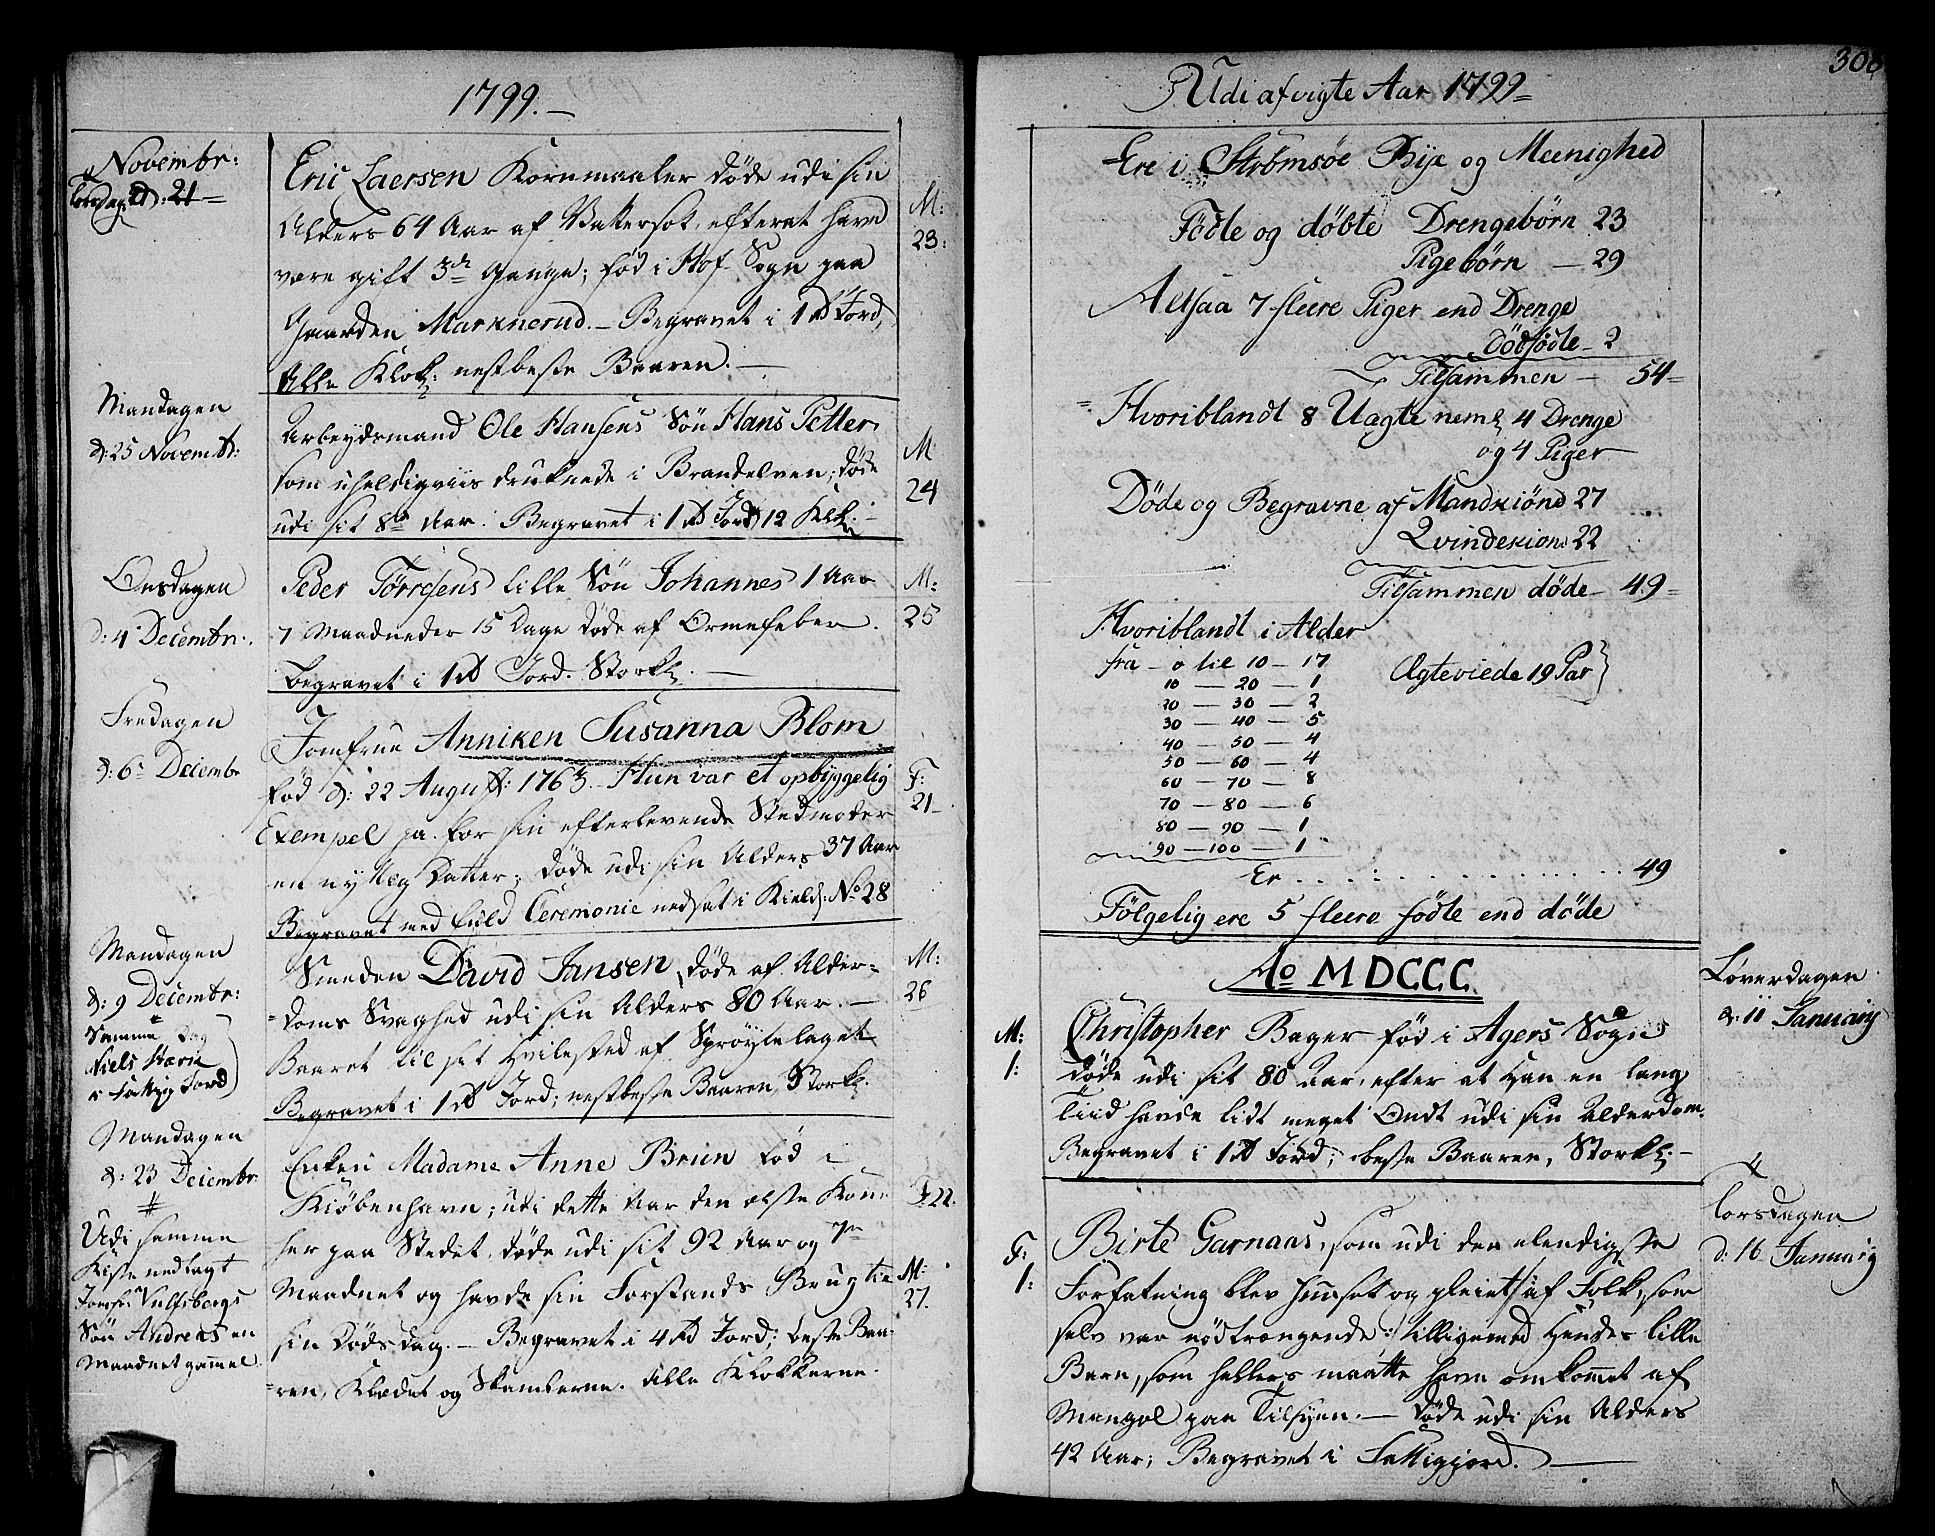 1799.
Novembr:
Torsdag d: 21
Eric Laersen Kornmaaler døde udi sin
Alders 64 Aar af Vattersot, efterat have
være gift 3de Gange; fød i Hof Sogn paa
Gaarden Marknerud. Begravet i 1 Rd Jord,
Alle Klok: nestbeste Baaren.
M:
23:
Mandagen
d: 25 Novembr:
Arbeydsmand Ole Hansens Søn Hans Petter,
som uheldigviis druknede i Brandelven; døde
udi sit 8de Aar. Begravet i 1 Rd Jord 12 Klk:
M
24
Onsdagen
d: 4 Decembr:
Peder Tørresens lille Søn Johannes 1 Aar
7 Maadneder 15 Dage døde af Ormefeber.
Begravet i 1 Rd Jord. Storkl.
M:
25
Fredagen
d: 6 Decembr
Jomfrue Anniken Susanna Blom
fød d: 22 August: 1763. Hun var et opbyggelig
Exempel ja for sin efterlevende Stedmoder
en nyttig Datter; døde udi sin Alders 37 Aar
Begravet med fuld Ceremonie nedsat i Kield: No 28
F:
21
Mandagen
d: 9 Decembr:
Samme Dag
Niels
i Fattig Jord
Smeden David Jansen, døde af Alder=
doms Svaghed udi sin Alders 80 Aar.
Baaret til sit Hvilested af Sprøytelaget
Begravet i 1 Rd Jord; nestbeste Baaren, Storkl.
M:
26
Mandagen
d: 23 Decembr
Enken Madame Anne Brun fød i
Kiøbenhavn; udi dette Aar den elste Kone
her paa Stedet, døde udi sit 92 Aar og 7de
Maadnet og havde sin Forstands Brug til
sin Dødsdag. Begravet i 4 Rd Jord; beste Baa=
ren, Klædet og Skamlerne. Alle Klokkerne.
F 22.
Udi samme
Kiste nedlagt
Jomfru Vulfsbergs
Søn Andreas en
Maadnet gammel
M:
27.
308
Udi afvigte Aar 1799
Ere i Strømsøe Bye og Meenighed
Fødte og døbte Drengebørn 23
Pigebørn — 29
Altsaa 7 fleere Piger end Drenge
Dödføde - 2
Tilsammen — 54
Hvoriblandt 8 Uægte neml 4 Drenge
og 4 Piger
Døde og Begravne af Mandkiönd 27
Qvindekiön 22
Tilsammen døde - 49
Hvoriblandt i Alder
fra - 0 til 10 - 17
10 — 20 — 1
20 — 30 — 2
30 — 40 — 5
40 — 50 — 4
50 — 60 — 4
60 — 70 — 8
70 — 80 — 6
80 — 90 — 1
90 — 100 — 1
Ægteviede 19 Par
Er . . . . . . 49
Følgelig ere 5 fleere fødte end døde
Ao MDCCC.
Løverdagen
d: 11 Januarij
M:
1:
Christopher Bager fød i Agers Sogn
døde udi sit 80 Aar, efter at Han en lang
Tiid havde lidt meget Ondt udi sin Alderdom.
Begravet i 1 Rd Jord; beste Baaren, Storkl.
Torsdagen
d: 16 Januarij
F:
1:
Birte Garnaas, som udi den elendigste
Forfatning blev huuset og pleiet af Folk, som
selv var nødtrængende; tilligemed Hendes lille
Barn, som hellers maatte have omkommet af
Mangel paa Tilsyn. — Døde udi sin Alders
42 Aar; Begravet i Fattigjord.